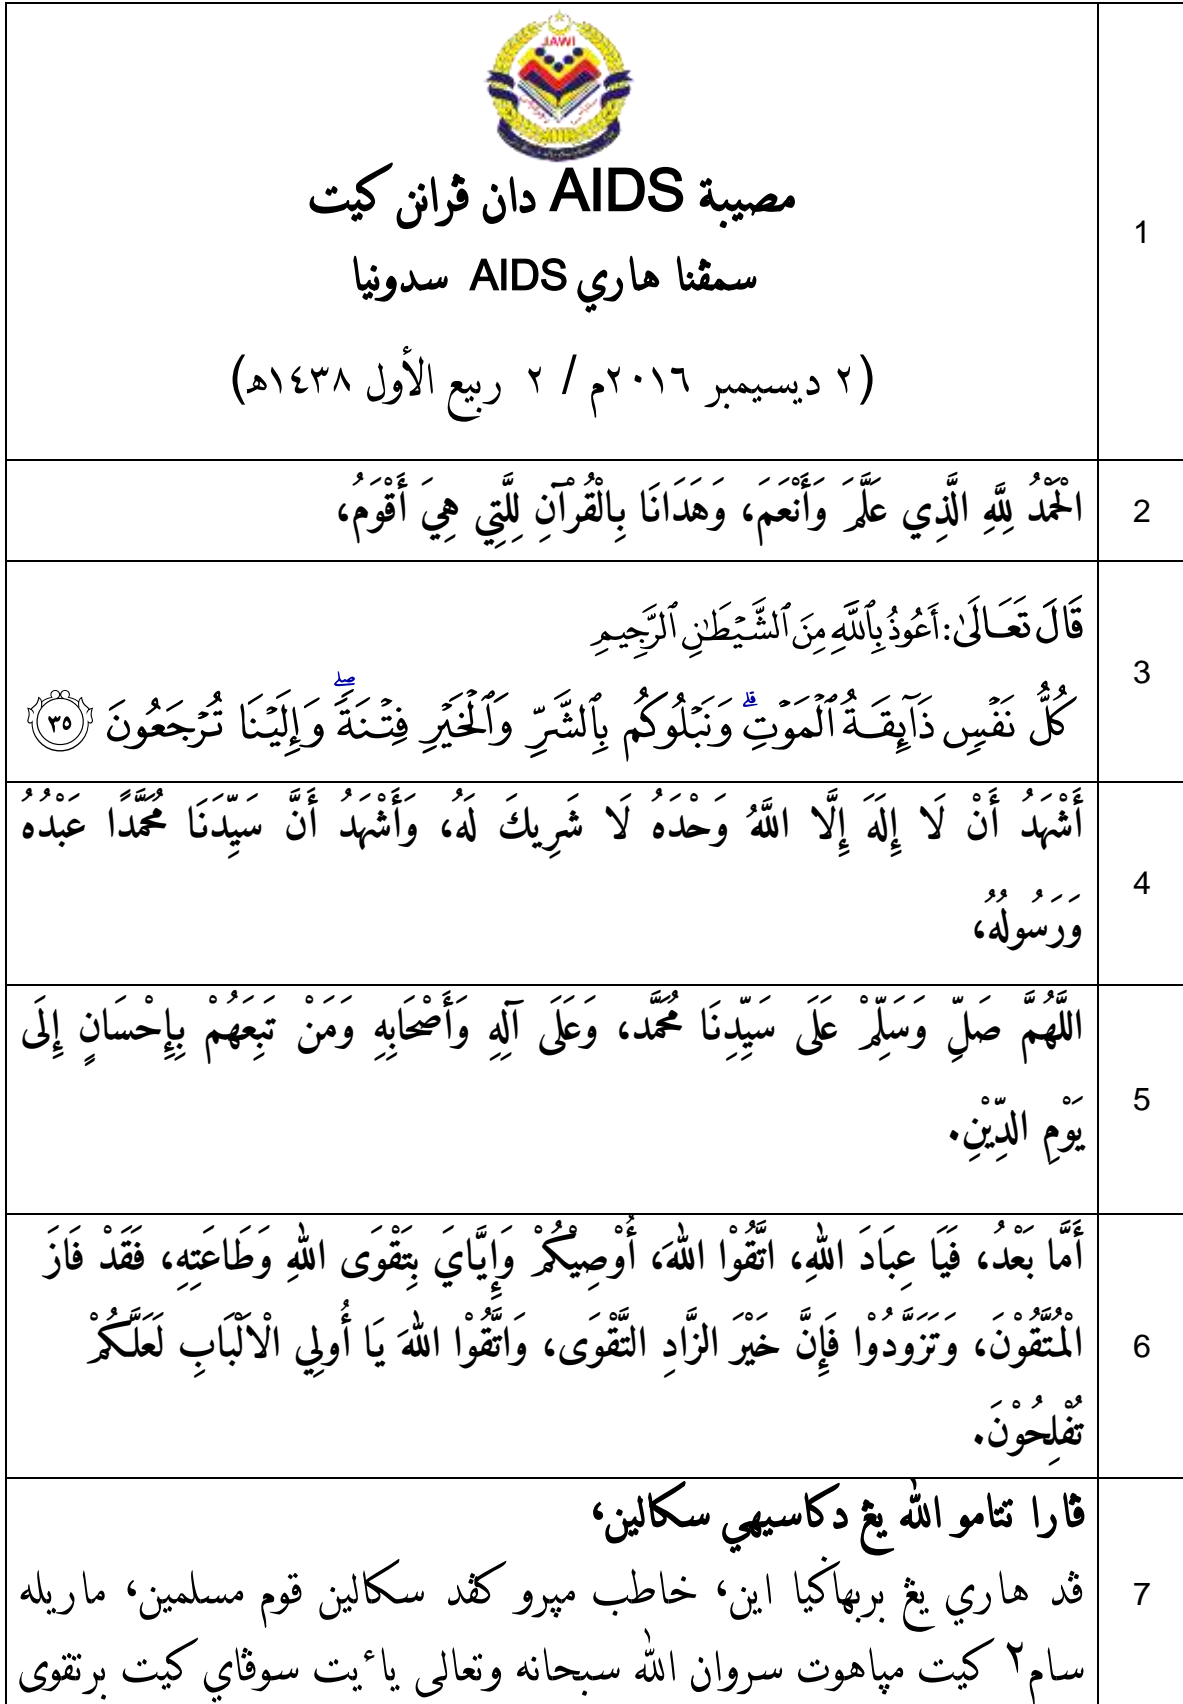 JAWI
مصيبة AIDS دان ڤرانن كيت
سمڤنا هاري AIDS سدونيا
(٢ ديسيمبر ٢٠١٦م / ٢ ربيع الأول ١٤٣٨ه)
1
الْحَمْدُ لِلَّهِ الَّذِي عَلَّمَ وَأَنْعَمَ، وَهَدَانَا بِالْقُرْآنِ لِلَّتِي هِيَ أَقْوَمُ،
2
قَالَ تَعَالَىٰ: أَعُوذُ بِٱللَّهِ مِنَ ٱلشَّيْطَٰنِ ٱلرَّجِيمِ
كُلُّ نَفْسٍ ذَآئِقَةُ ٱلْمَوْتِۗ وَنَبْلُوكُم بِٱلشَّرِّ وَٱلْخَيْرِ فِتْنَةًۖ وَإِلَيْنَا تُرْجَعُونَ ٣٥
3
أَشْهَدُ أَنْ لَا إِلَهَ إِلَّا اللَّهُ وَحْدَهُ لَا شَرِيكَ لَهُ، وَأَشْهَدُ أَنَّ سَيِّدَنَا مُحَمَّدًا عَبْدُهُ
وَرَسُولُهُ،
4
اللَّهُمَّ صَلِّ وَسَلِّمْ عَلَى سَيِّدِنَا مُحَمَّد، وَعَلَى آلِهِ وَأَصْحَابِهِ وَمَنْ تَبِعَهُمْ بِإِحْسَانٍ إِلَى
يَوْمِ الدِّيْنِ.
5
أَمَّا بَعْدُ، فَيَا عِبَادَ اللهِ، اتَّقُوْا اللهَ، أُوْصِيْكُمْ وَإِيَّايَ بِتَقْوَى اللهِ وَطَاعَتِهِ، فَقَدْ فَازَ
الْمُتَّقُوْنَ، وَتَزَوَّدُوْا فَإِنَّ خَيْرَ الزَّادِ التَّقْوَى، وَاتَّقُوْا اللهَ يَا أُولِي الْالْبَابِ لَعَلَّكُمْ
تُفْلِحُوْنَ.
6
ڤارا تتامو الله يڠ دكاسيهي سكالين،
ڤد هاري يڠ بربهاݢيا اين، خاطب ميرو كڤد سكالين قوم مسلمين، ماريله
سام٢ كيت مڽاهوت سروان الله سبحانه وتعالى ياءيت سوڤاي كيت برتقوى
7